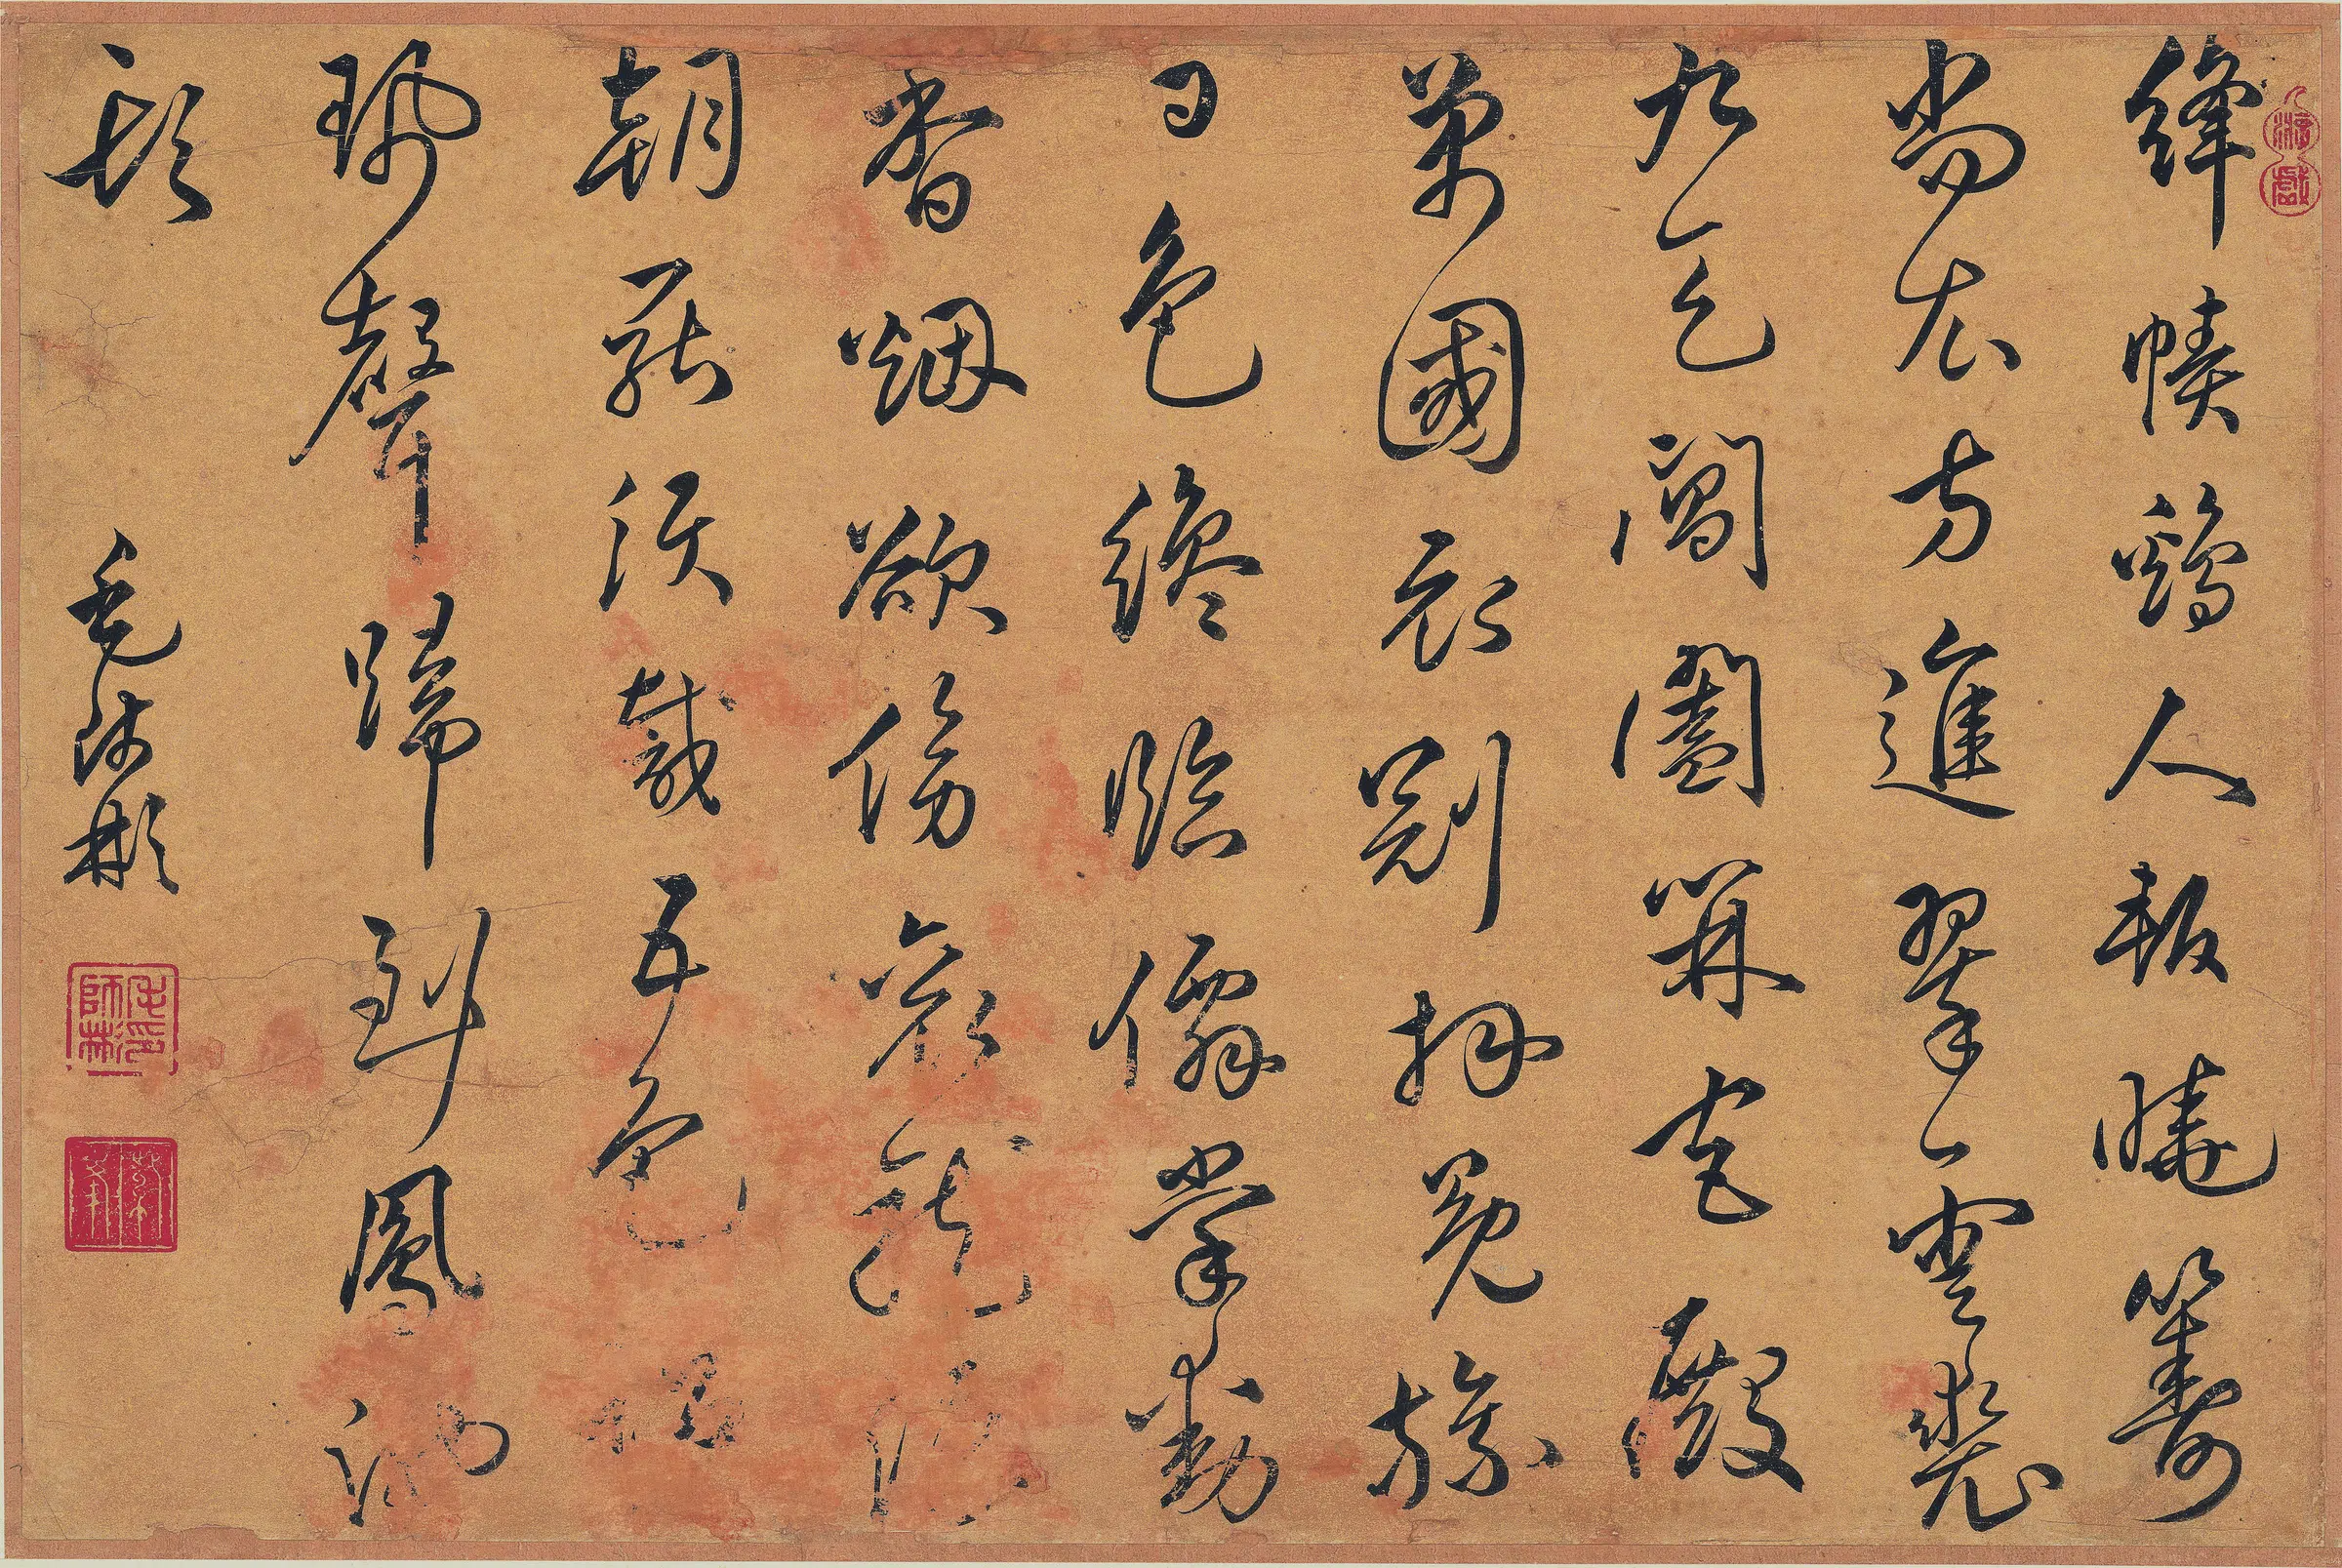 絳幘鷄人報曉籌
尚衣方進翠雲裘
九天閶闔開宮殿
萬國衣冠拜冕旒
日色纔臨僊掌動
香烟欲傍袞龍浮
朝罷須裁五色詔
珮聲歸到鳳池
頭 毛師彬
毛師彬印